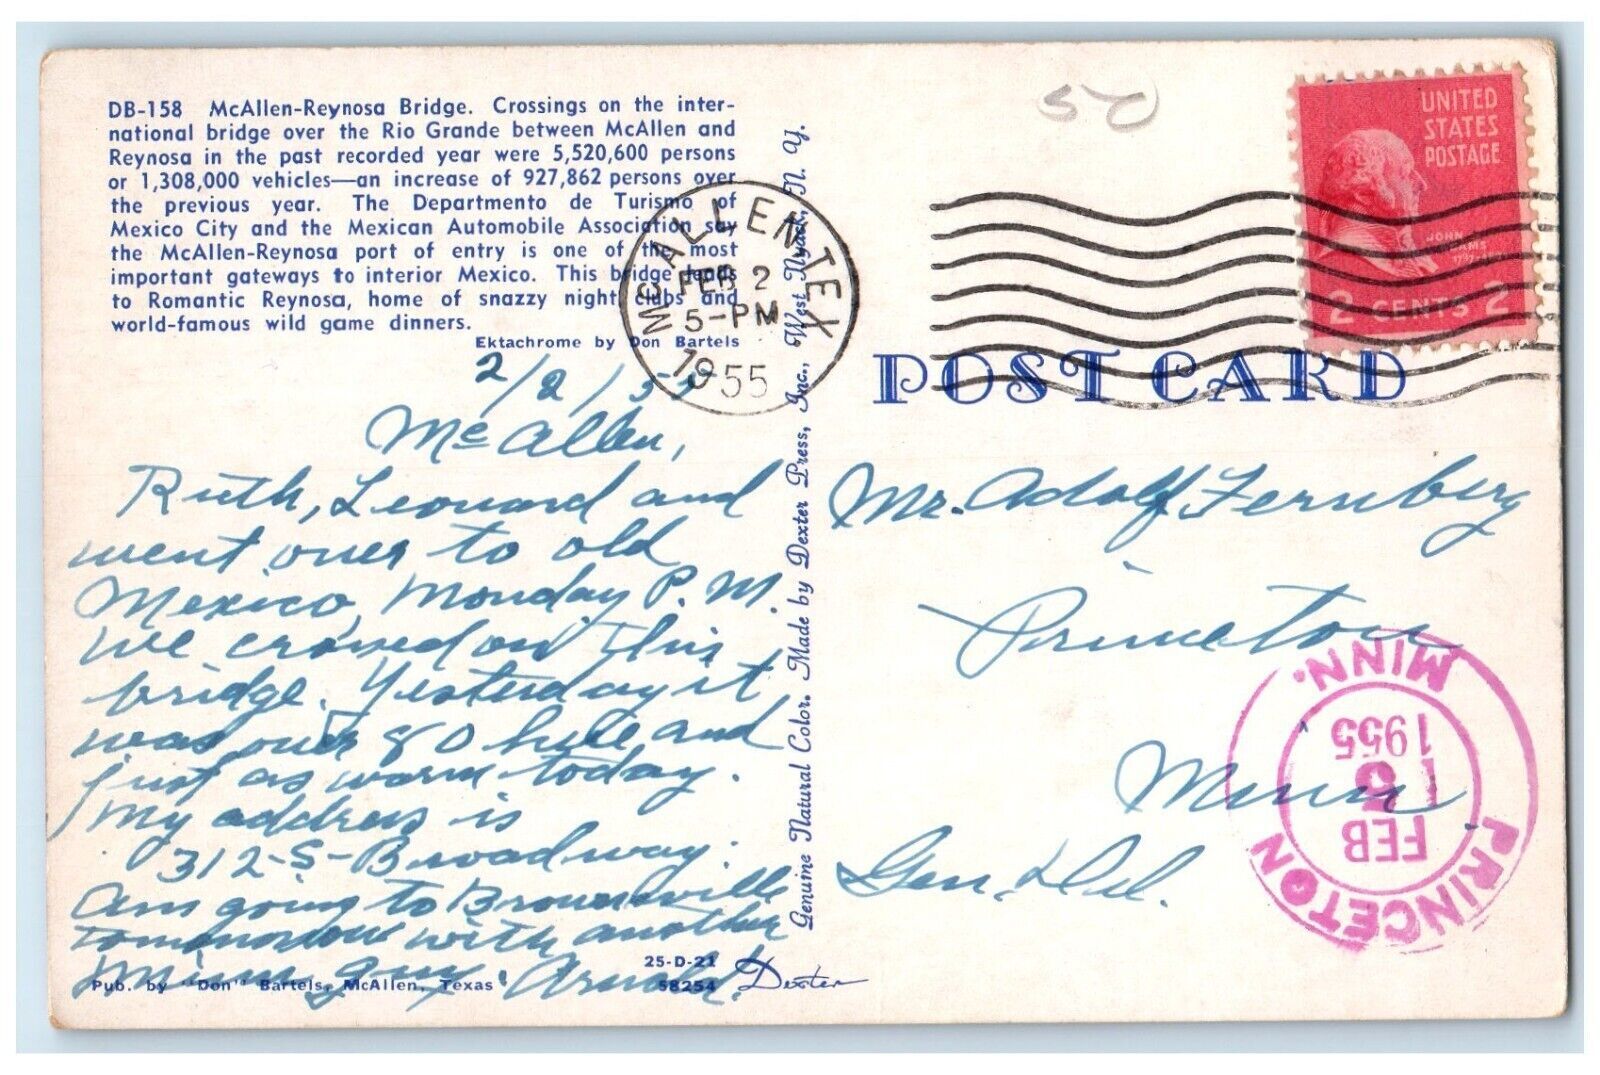 DB-158 McAllen-Reynosa Bridge. Crossings on the inter-
national bridge over the Rio Grande between McAllen and
Reynosa in the past recorded year were 5,520,600 persons
or 1,308,000 vehicles—an increase of 927,862 persons over
the previous year. The Departmento de Turismo of
Mexico City and the Mexican Automobile Association say
the McAllen-Reynosa port of entry is one of the most
important gateways to interior Mexico. This bridge leads
to Romantic Reynosa, home of snazzy night clubs and
world-famous wild game dinners.
Ektachrome by Don Bartels
2/2/55
McAllen,
Ruth, Leonard and
went over to old
Mexico, Monday P.M.
We crossed on this
bridge. Yesterday it
was over 80 here and
just as warm today.
My address is
312-S-Broadway.
Am going to Brownsville
tomorrow with another
Minn guy. Arnold.
Pub. by "Don" Bartels, McAllen, Texas
25-D-21
58254
Dexter
Genuine Natural Color. Made by Dexter Press, Inc., West Nyack, N. Y.
McALLEN TEX
FEB 2
5-PM
1955
50
UNITED
STATES
POSTAGE
JOHN
ADAMS
2 CENTS 2
POST CARD
Mr. Adolf Fernberg
Princeton
Minn.
Gen. Del.
PRINCETON
FEB
1955
MINN.